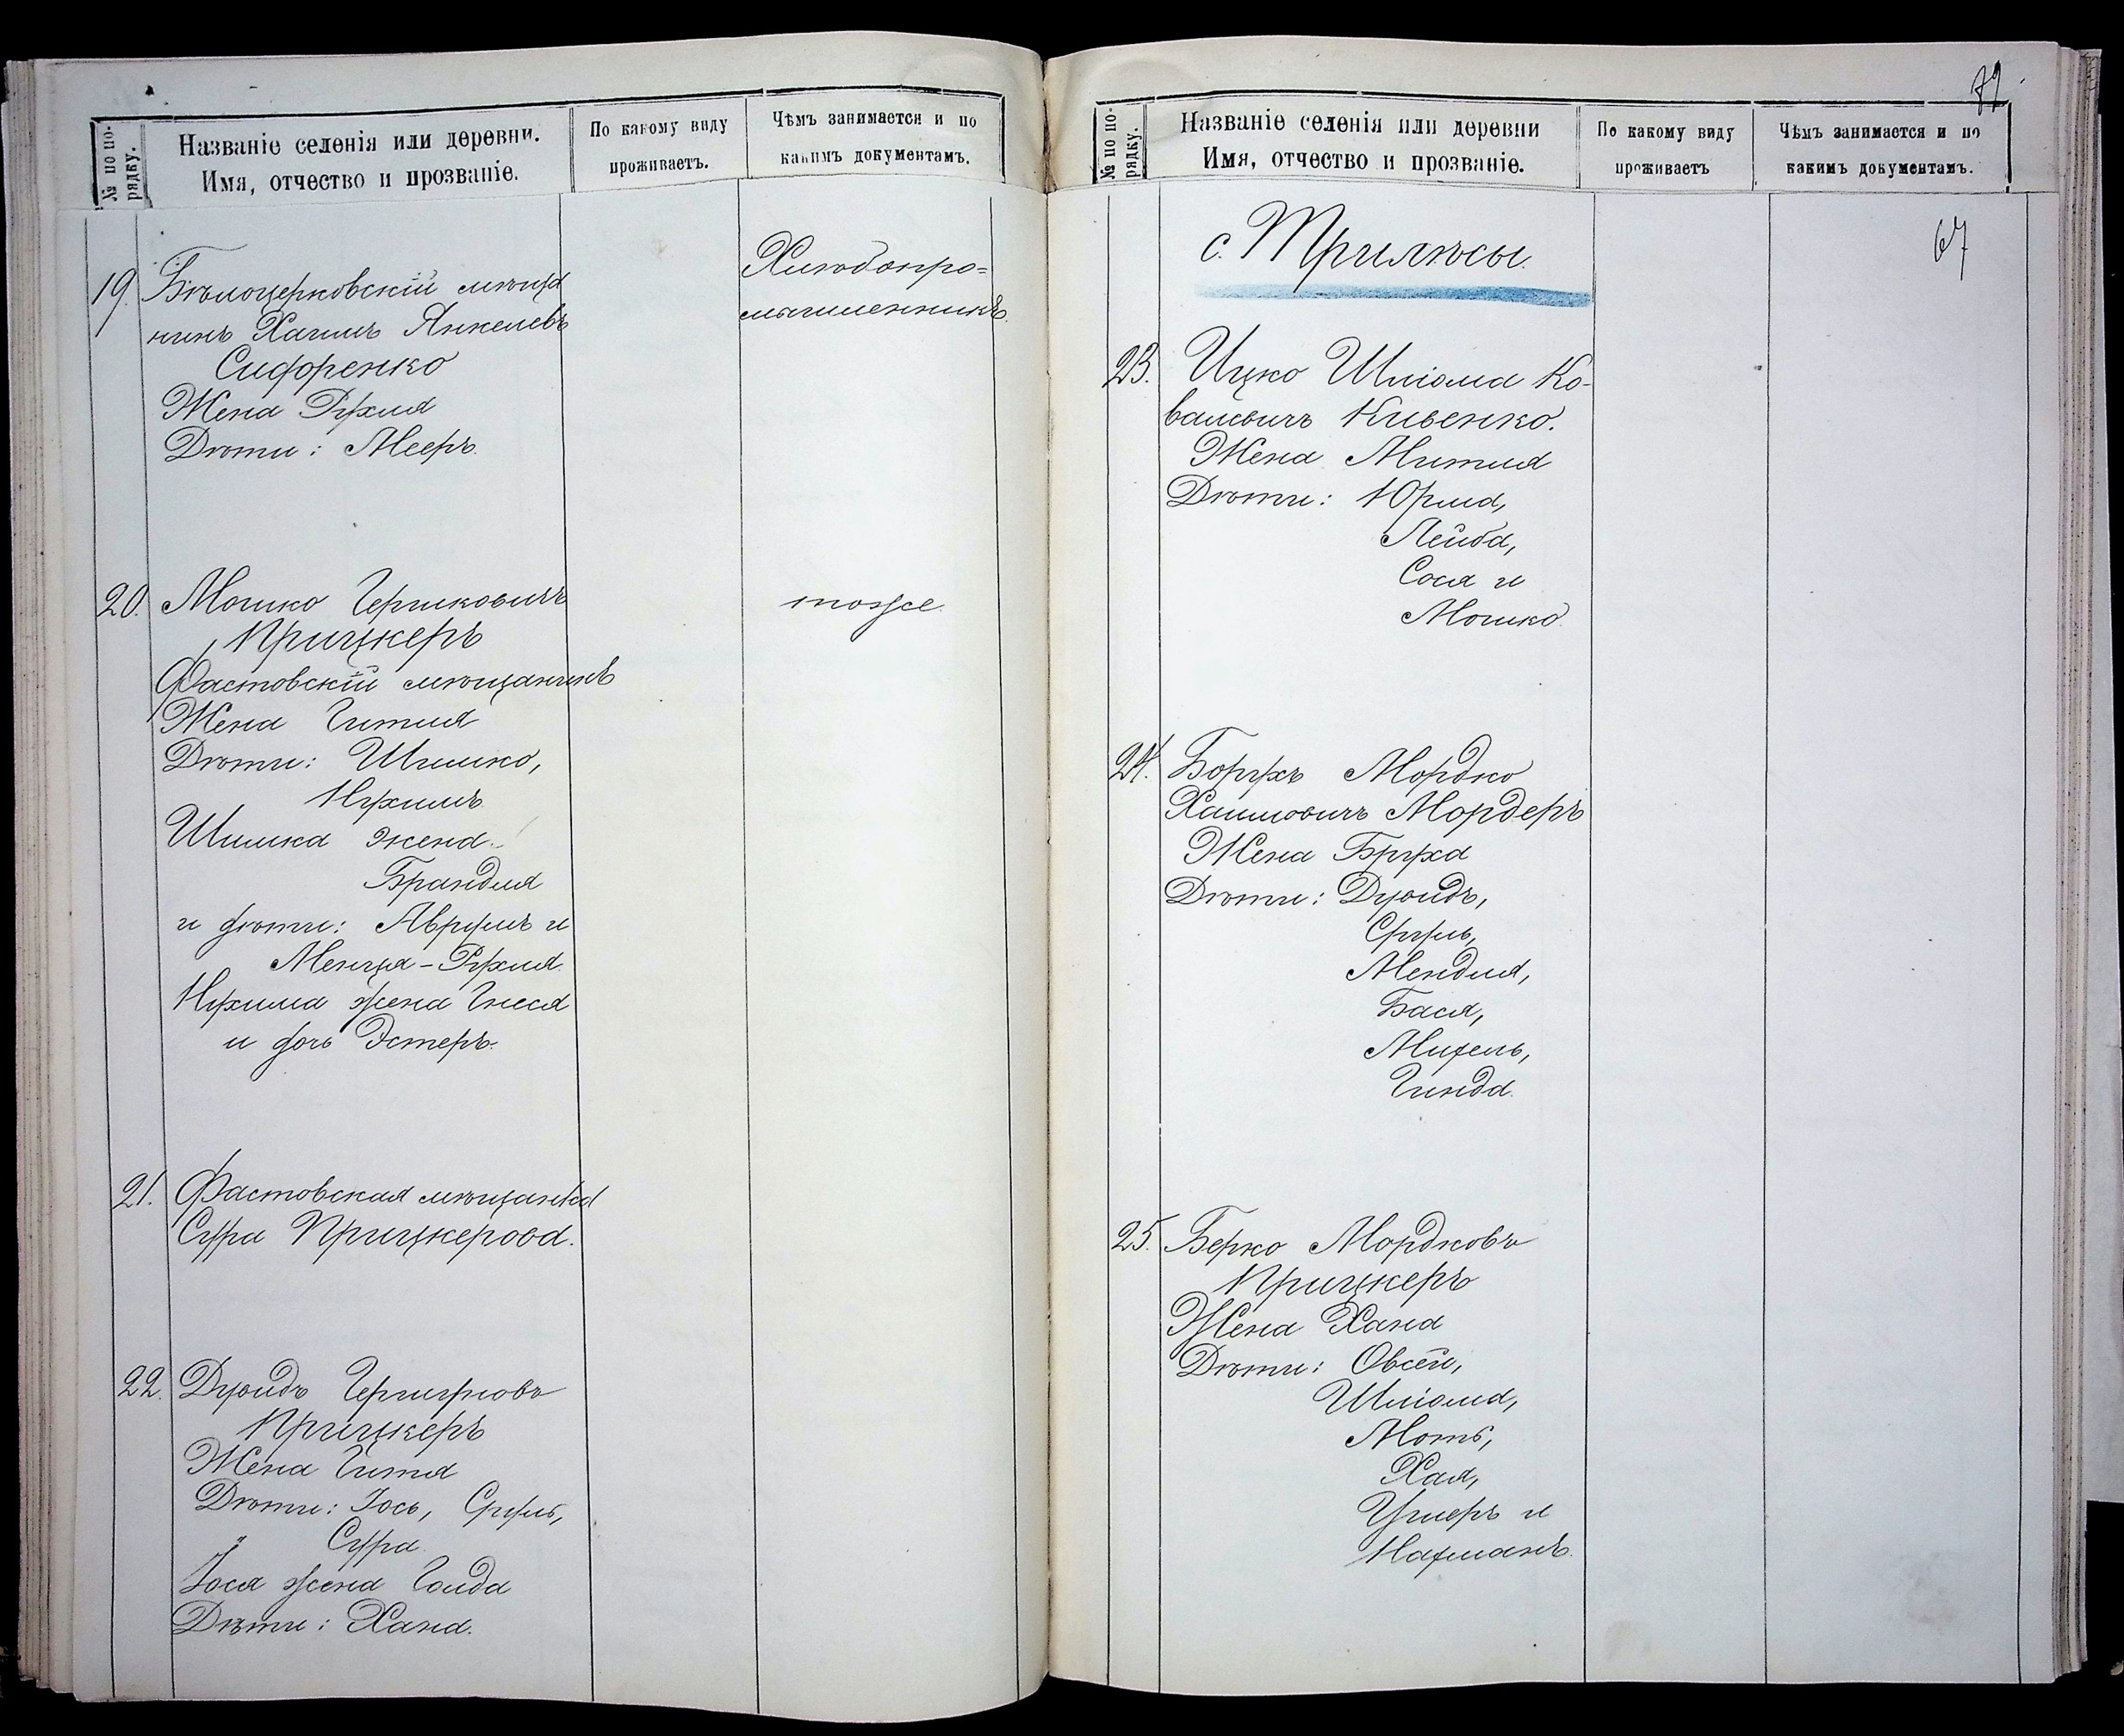 № по по-
рядку.
Названіе селенія или деревни.
Имя, отчество и прозваніе.
По какому виду
проживаетъ.
Чѣмъ занимается и по
какимъ документамъ.
19. Бѣлоцерковскій мѣща
нинъ Хаимъ Янкелевъ
Сидоренко
Жена Рухля
Дѣти: Мееръ.
Хлѣбопро=
мышленникъ.
20. Мошко Гершковичъ
Прицкеръ
Фастовскій мѣщанинъ
Жена Гитля
Дѣти: Шлимко,
Нухимъ
Шлимка жена
Брандля
и дѣти: Аврумъ и
Менця-Рухля.
Нухима жена Гнеся
и дочь Эстеръ.
тоже.
21. Фастовская мѣщанка
Сура Прицкерова.
22. Дувидъ Гершуновъ
Прицкеръ
Жена Гитя
Дѣти: Іось, Сруль,
" Сура.
Іося жена Голда
Дѣти: Хана.
72.
№ по по-
рядку.
Названіе селенія или деревни
Имя, отчество и прозваніе.
По какому виду
проживаетъ
Чѣмъ занимается и по
какимъ документамъ.
с. Трилѣсы.
67
23. Ицко Шліома Ко-
валевичъ Кивенко.
Жена Митля
Дѣти: Юрма,
Лейба,
Сося и
Мошко.
24. Борухъ Мордко
Хаимовичъ Мордеръ
Жена Бруха
Дѣти: Дувидъ,
Сруль,
Мендля,
Бася,
Михель,
Гинда.
25. Берко Мордковъ
Прицкеръ
Жена Хана
Дѣти: Овсей,
Шліома,
Моть,
Хая,
Ушеръ и
Нахманъ.